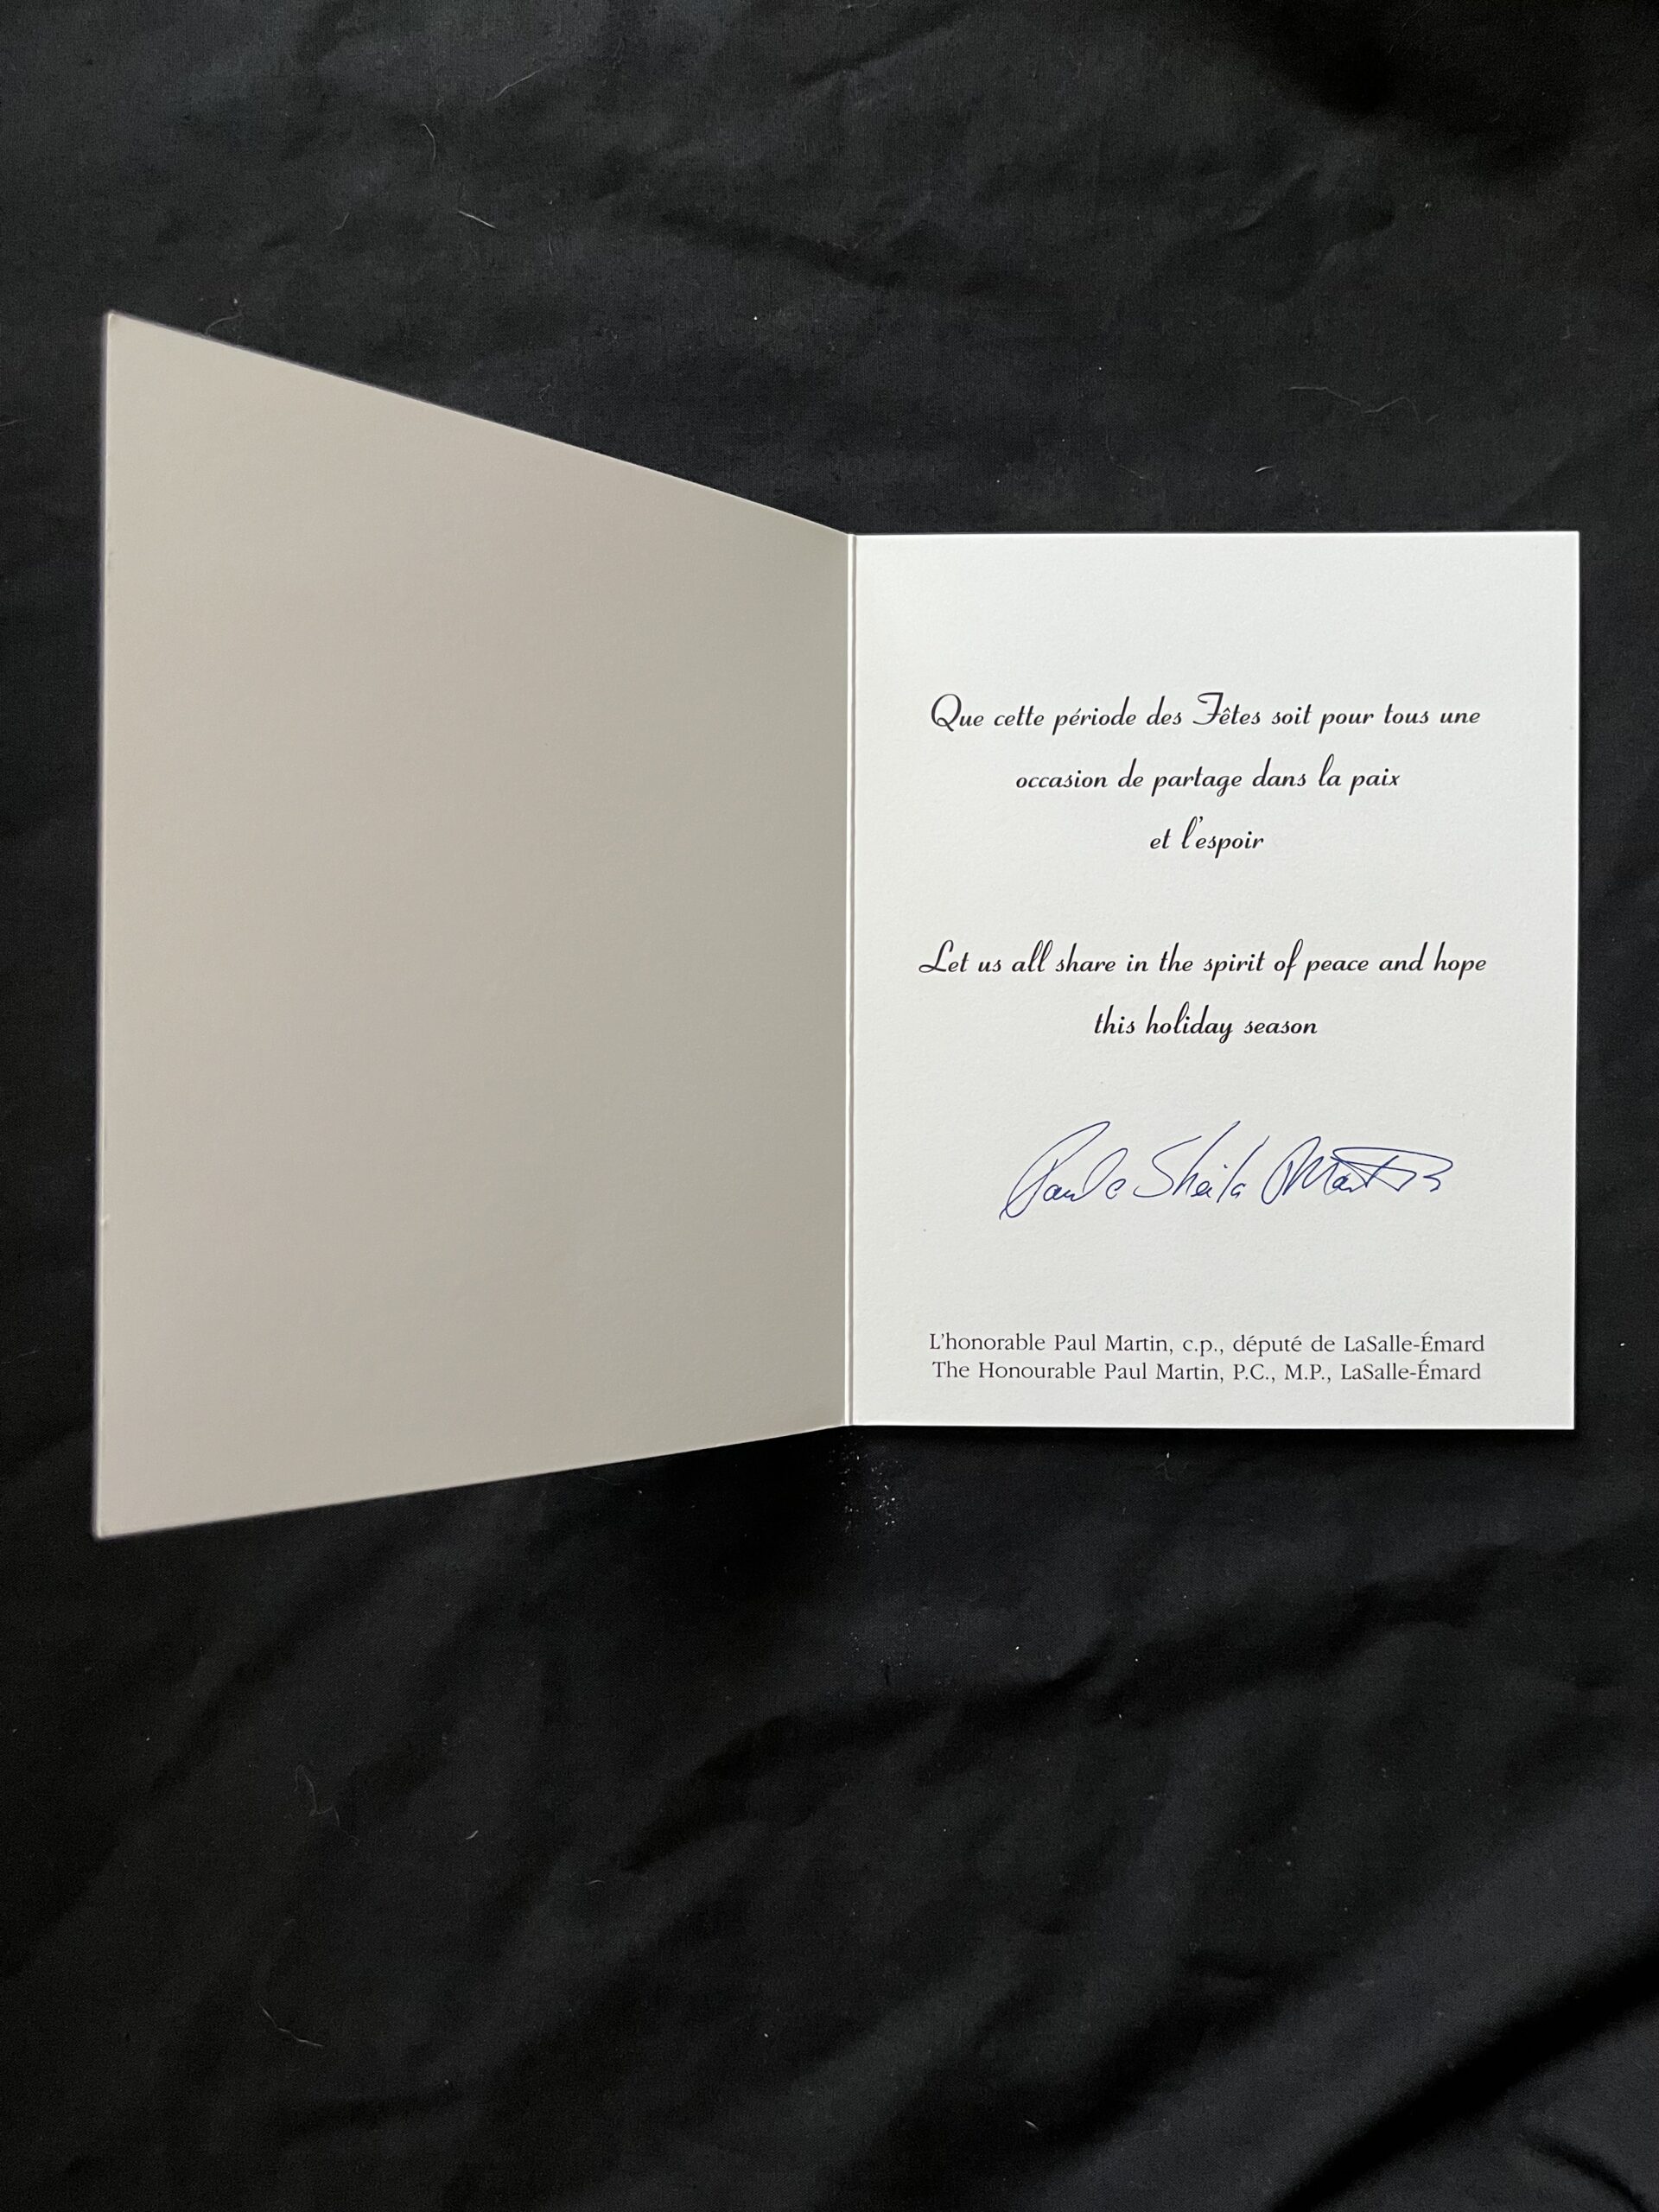 Que cette période des Fêtes soit pour tous une
occasion de partage dans la paix
et l'espoir
Let us all share in the spirit of peace and hope
this holiday season
Paul e Sheila Martin
L'honorable Paul Martin, c.p., député de LaSalle-Émard
The Honourable Paul Martin, P.C., M.P., LaSalle-Émard